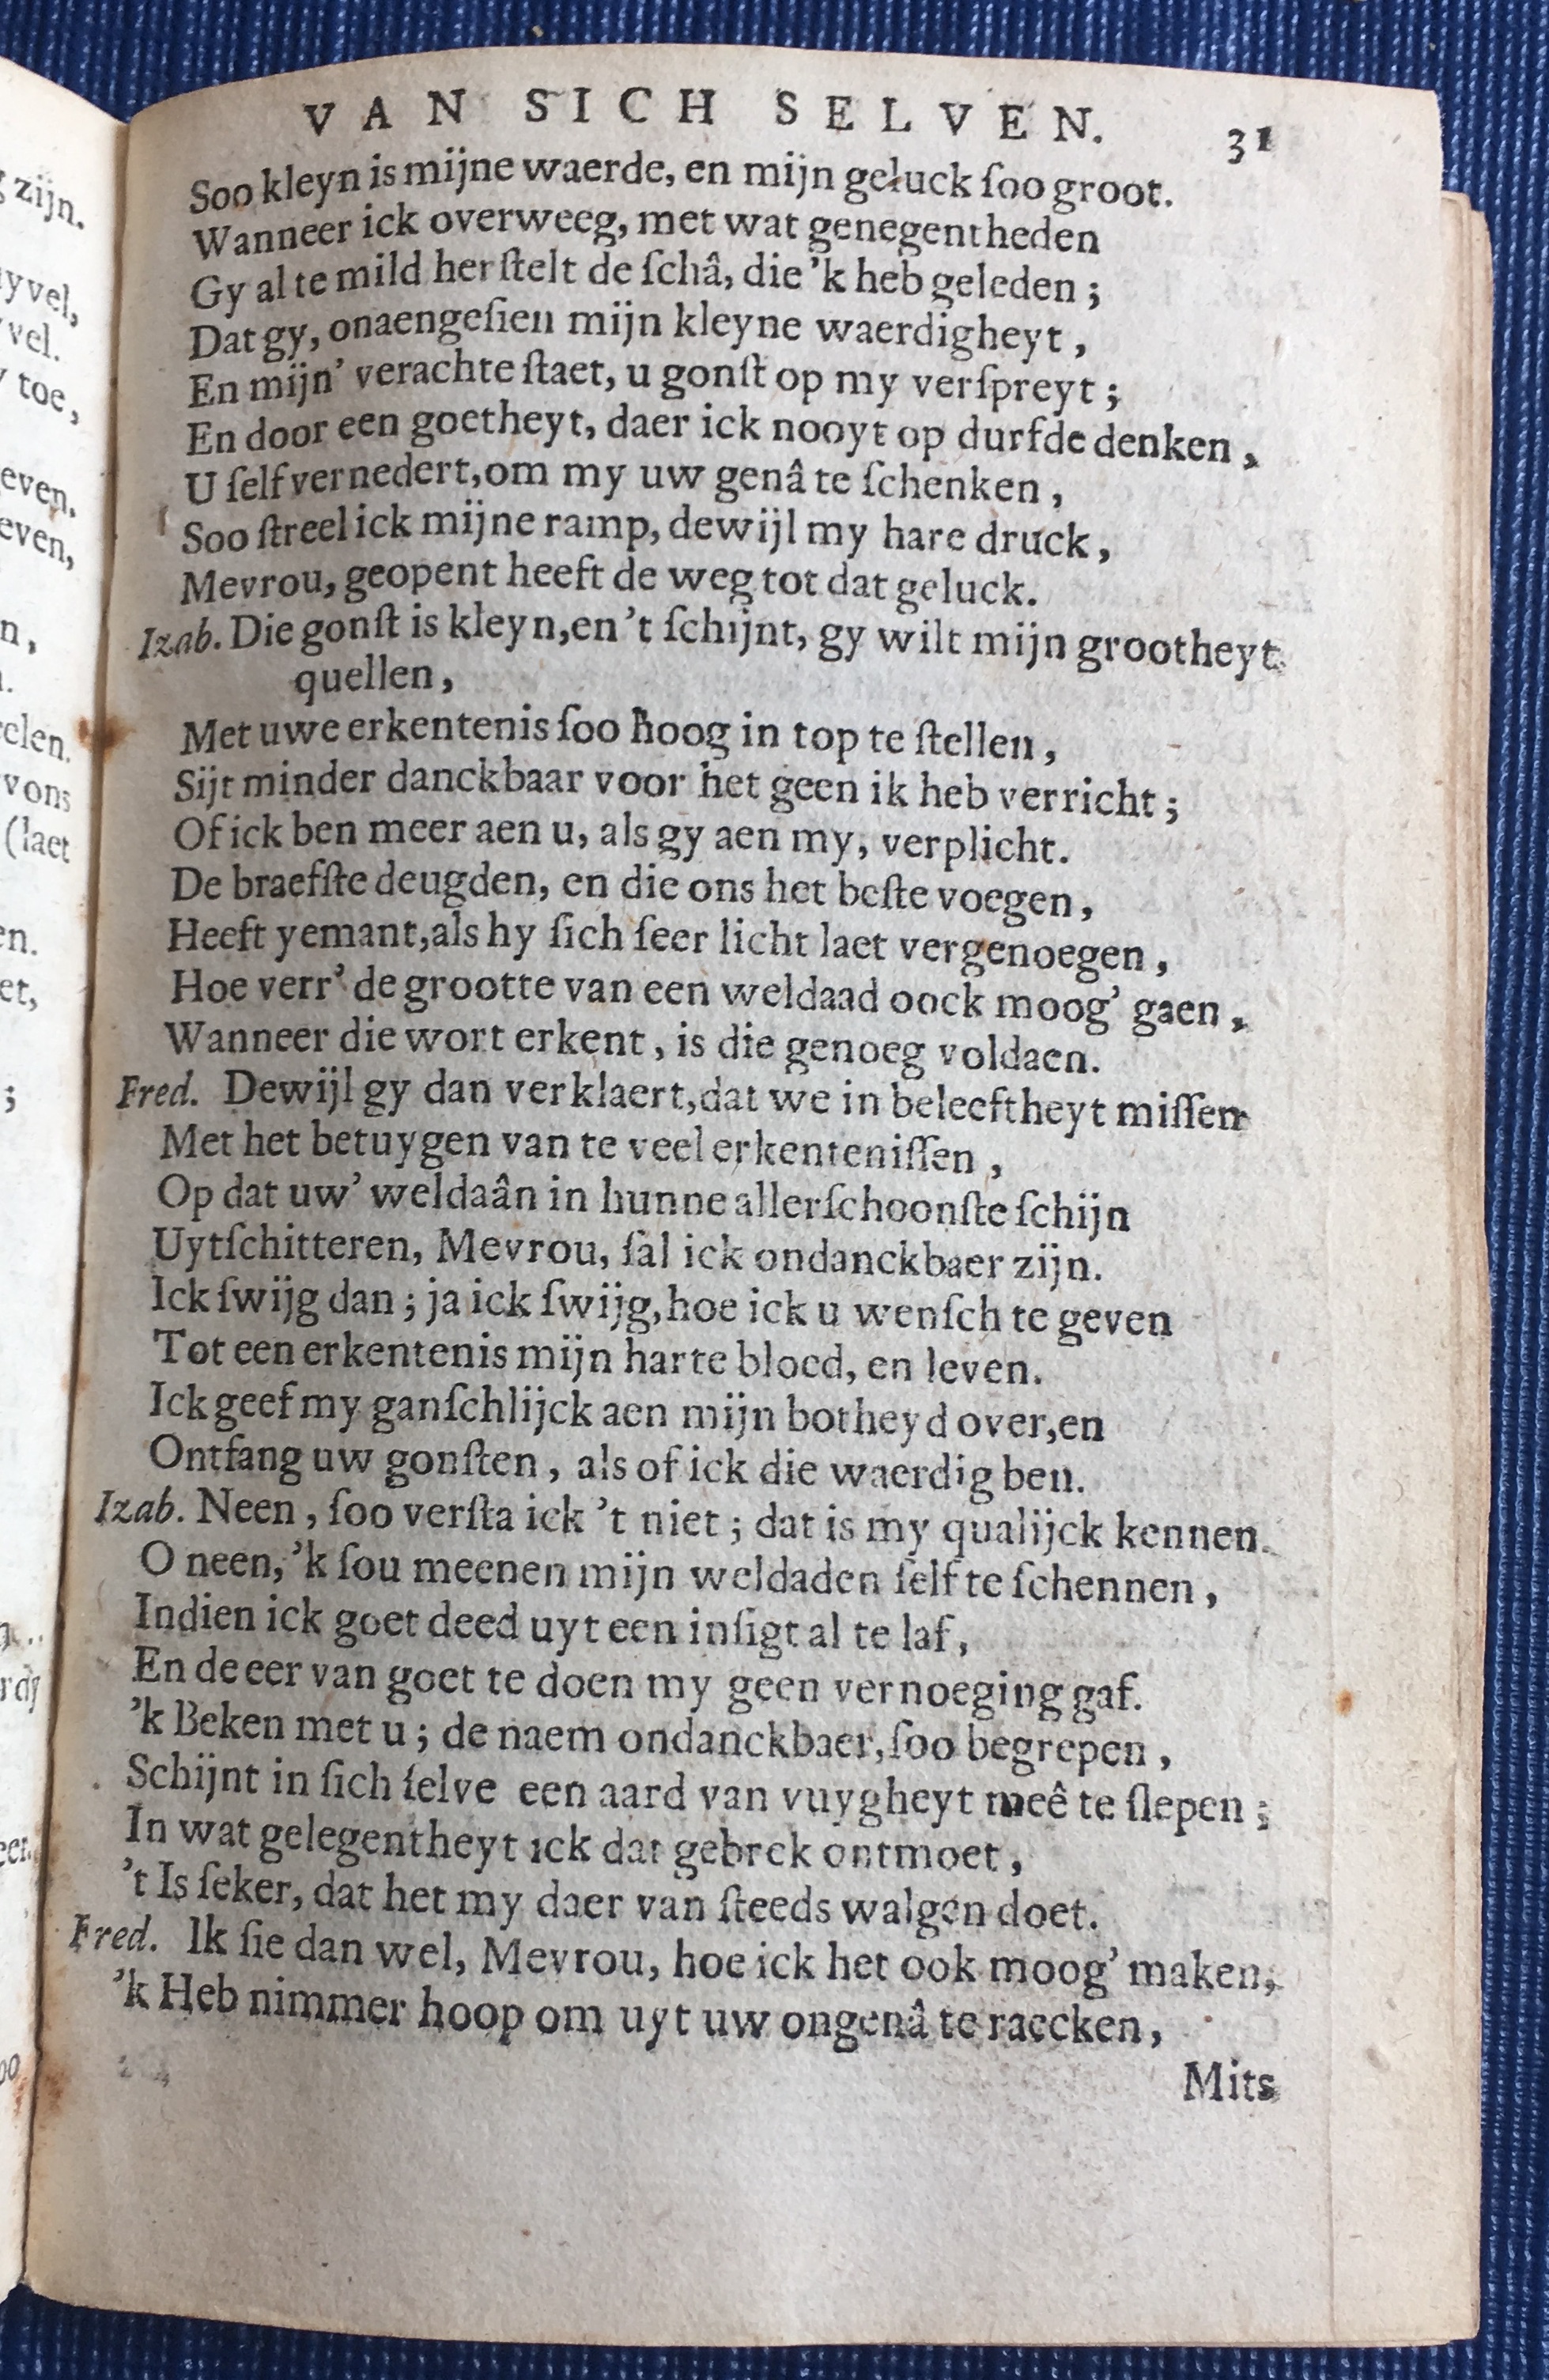 VAN SICH SELVEN. 31
Soo kleyn is mijne waerde, en mijn geluck ſoo groot.
Wanneer ick overweeg, met wat genegentheden
Gy al te mild herſtelt de ſchâ, die 'k heb geleden;
Dat gy, onaengeſien mijn kleyne waerdigheyt,
En mijn' verachte ſtaet, u gonſt op my verſpreyt;
En door een goetheyt, daer ick nooyt op durfde denken,
U ſelf vernedert, om my uw genâ te ſchenken,
Soo ſtreel ick mijne ramp, dewijl my hare druck,
Mevrou, geopent heeft de weg tot dat geluck.
Izab. Die gonſt is kleyn, en 't ſchijnt, gy wilt mijn grootheyt
quellen,
Met uwe erkentenis ſoo hoog in top te ſtellen,
Sijt minder danckbaar voor het geen ik heb verricht;
Of ick ben meer aen u, als gy aen my, verplicht.
De braefſte deugden, en die ons het beſte voegen,
Heeft yemant, als hy ſich ſeer licht laet vergenoegen,
Hoe verr' de grootte van een weldaad oock moog' gaen,
Wanneer die wort erkent, is die genoeg voldaen.
Fred. Dewijl gy dan verklaert, dat we in beleeftheyt miſſen
Met het betuygen van te veel erkenteniſſen,
Op dat uw' weldaân in hunne allerſchoonſte ſchijn
Uytſchitteren, Mevrou, ſal ick ondanckbaer zijn.
Ick ſwijg dan; ja ick ſwijg, hoe ick u wenſch te geven
Tot een erkentenis mijn harte bloed, en leven.
Ick geef my ganſchlijck aen mijn botheyd over, en
Ontfang uw gonſten, als of ick die waerdig ben.
Izab. Neen, ſoo verſta ick 't niet; dat is my qualijck kennen.
O neen, 'k ſou meenen mijn weldaden ſelf te ſchennen,
Indien ick goet deed uyt een inſigt al te laf,
En de eer van goet te doen my geen vernoeging gaf.
'k Beken met u; de naem ondanckbaer, ſoo begrepen,
Schijnt in ſich ſelve een aard van vuygheyt meê te ſlepen;
In wat gelegentheyt ick dat gebrek ontmoet,
't Is ſeker, dat het my daer van ſteeds walgen doet.
Fred. Ik ſie dan wel, Mevrou, hoe ick het ook moog' maken,
'k Heb nimmer hoop om uyt uw ongenâ te raecken,
Mits